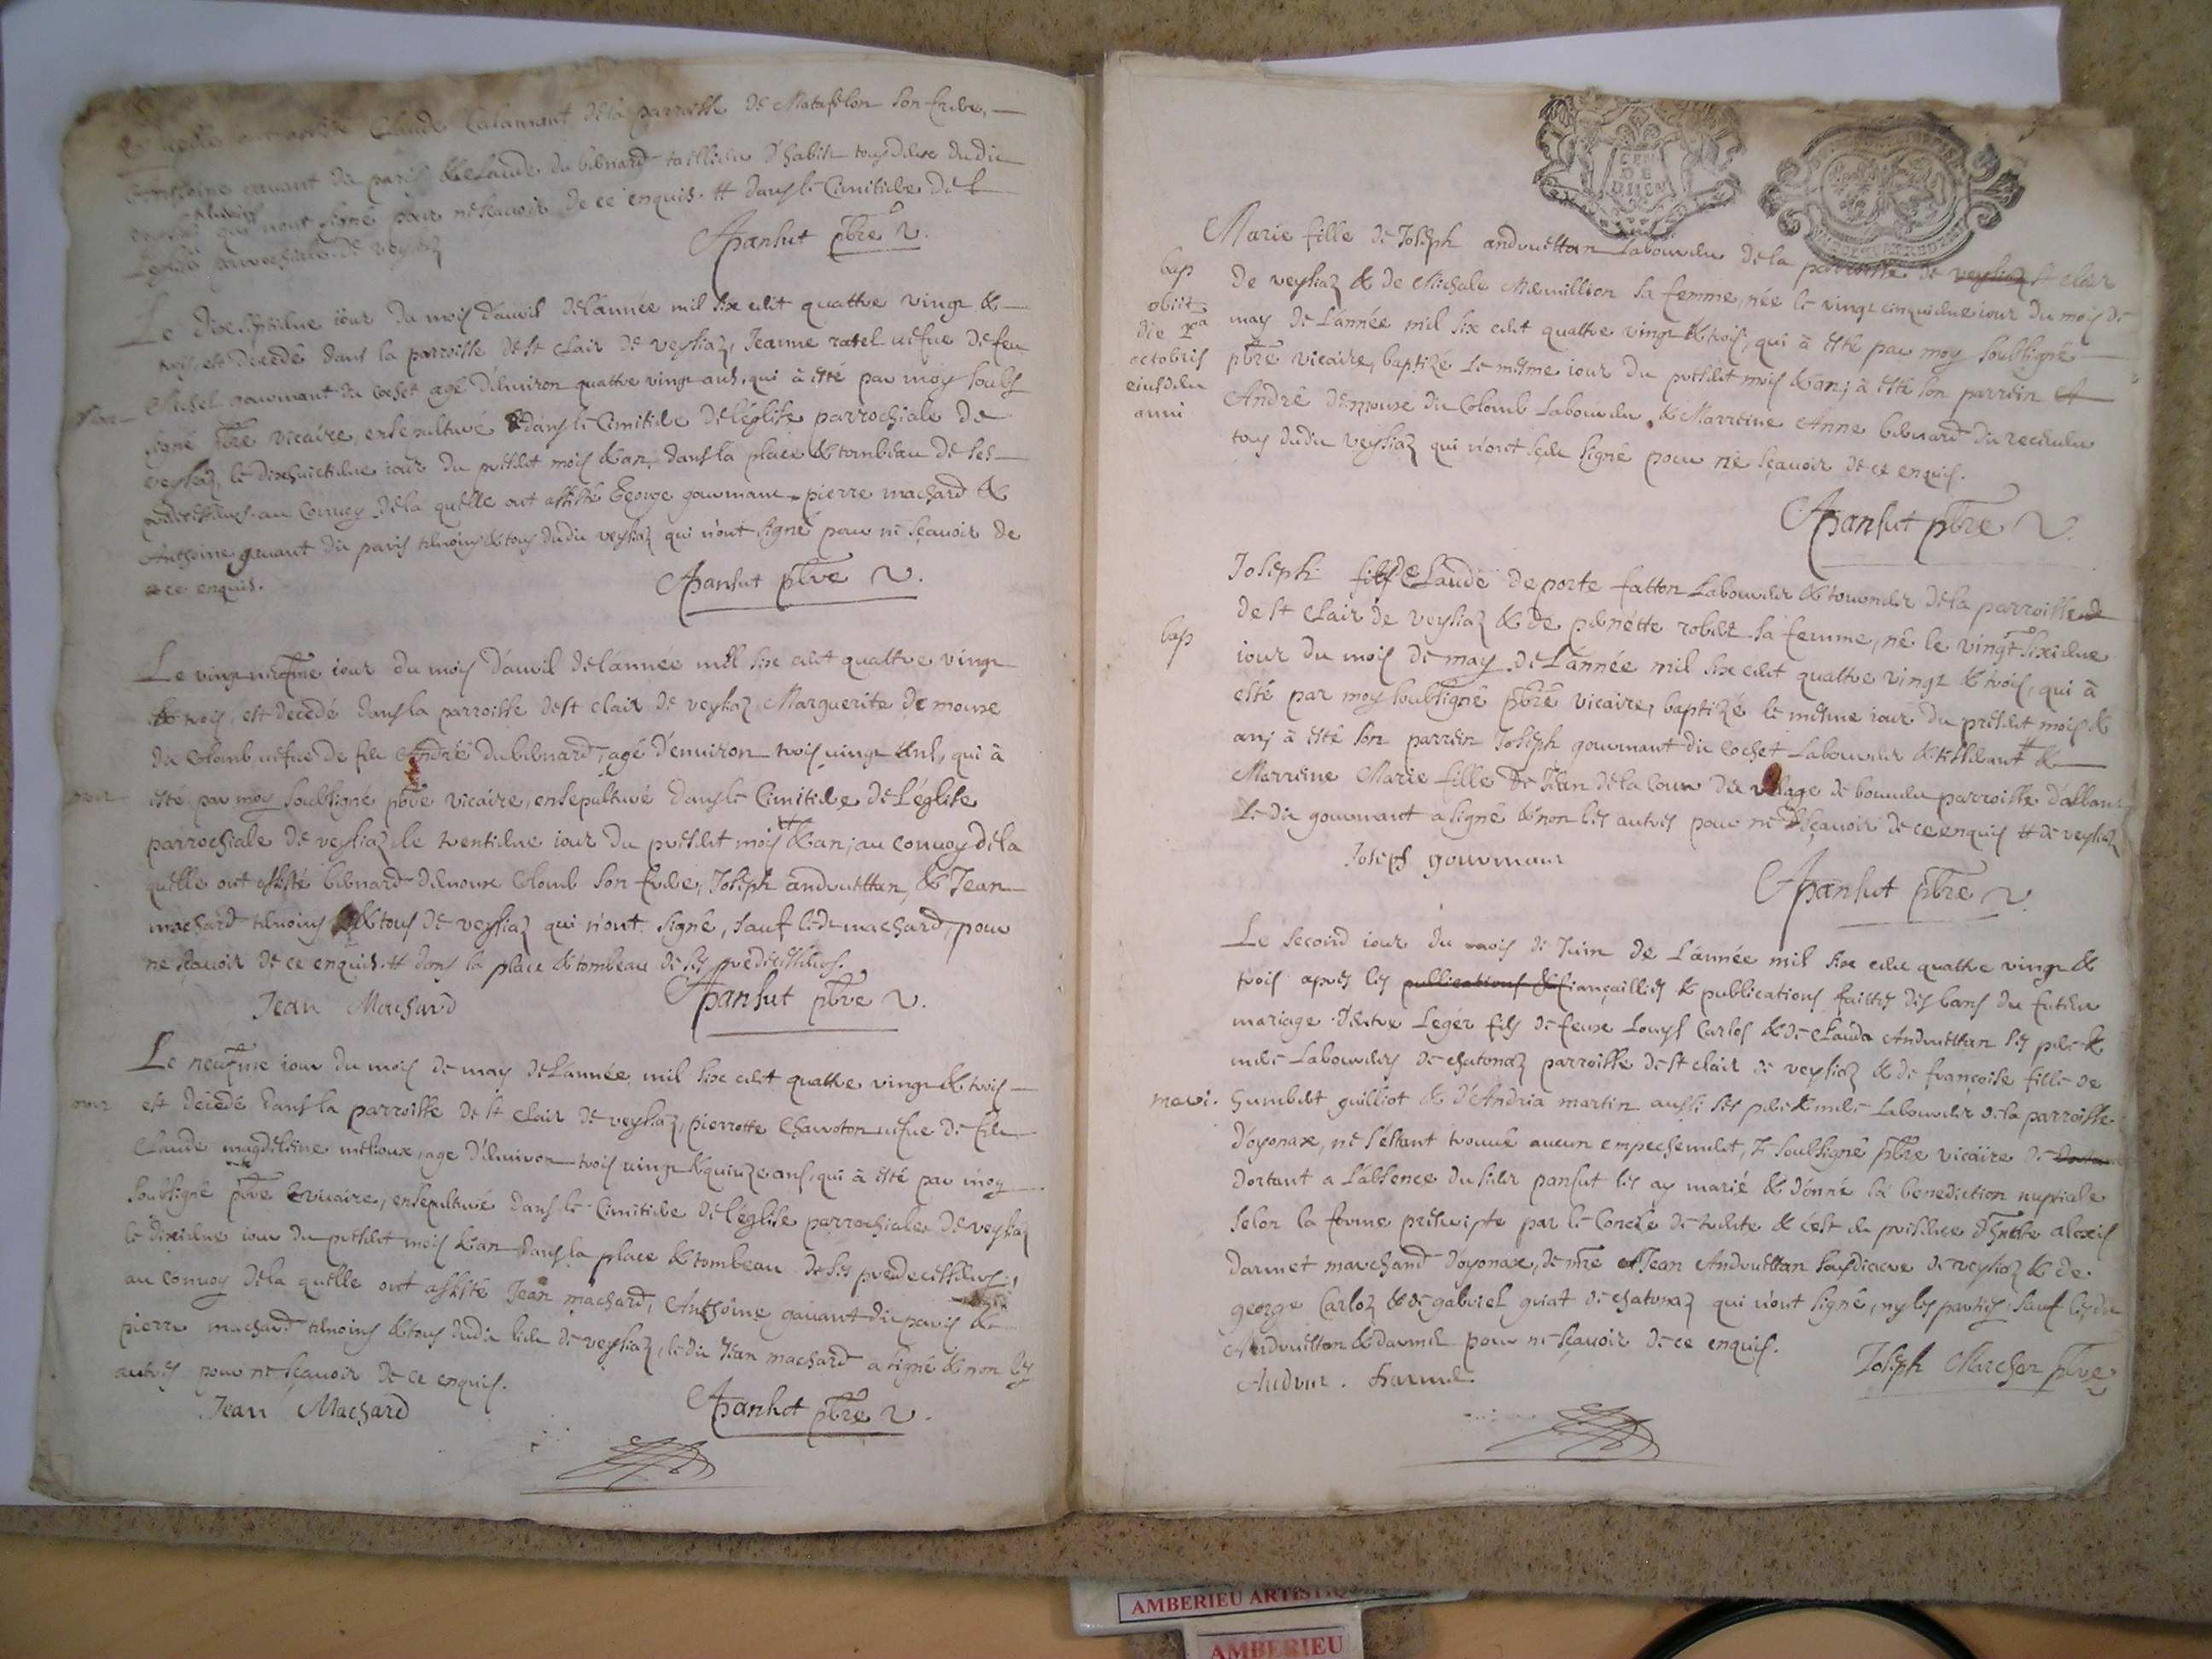 Claude Calamant de la parroisse de Matafelon son frere,
Anthoine gauant du paris & Claude du bernard taillieur d'habits tous deux dudit
veysiaz qui n'ont signé pour ne sçauoir de ce enquis. # dans le Cimitiere de l
Eglise parrochiale de veysiaz
Pansut pbre V.
Le dixseptieme iour du mois d'auril de l'année mil six cent quattre vingt &
trois, est decedé dans la parroisse de st clair de veysiaz, Jeanne ratel uefue de feu
Michel gourmant du cochet agé d'enuiron quattre vingt ans, qui à esté par moy soubs
signé pbre vicaire, ensepulturé dans le Cimitiere de l'église parrochiale de
veysiaz, le dixhuictieme iour du present mois & an, dans la place & tombeau de ses
predecesseurs. au Conuoy de la quelle ont assisté George gourmant, pierre machard &
Anthoine gauant du paris temoins & tous dudit veysiaz qui n'ont signé pour ne sçauoir de
ce enquis.
Pansut pbre V.
Le vingt neufme iour du mois d'auril de l'année mil six cent quattre vingt
& trois, est decedé dans la parroisse de st clair de veysiaz Marguerite De moure
du Colomb, uefue de feu André du bernard, agé d'enuiron trois vingt ans, qui à
esté par moy soubsigné pbre vicaire, ensepulturé dans le Cimitiere de L'église
parrochiale de veysiaz le trentieme iour du present mois # & an; au conuoy de la
quelle ont assisté bernard demoure Colomb son frere, Joseph andruettan, & Jean
machard temoins & tous de veysiaz qui n'ont signé, sauf ledit machard, pour
ne sçauoir de ce enquis. # dans la place & tombeau de ses predecesseurs.
Jean Machard
Pansut pbre V.
Le neufme iour du mois de may de L'année mil six cent quattre vingt & trois
est decedé dans la parroisse de st clair de veysiaz, pierrotte Chauoton uefue de feu
Claude magdeleine métioux, age d'enuiron trois vingt & quinze ans, qui à esté par moy
soubsigné pbre vicaire, ensepulturé dans le Cimitiere de l'église parrochiale de veysiaz
le dixieme iour du present mois & an dans la place & tombeau de ses predecesseurs,
au conuoy de la quelle ont assisté Jean machard, Anthoine gauant du paris &
pierre machard temoins & tous dudit lieu de veysiaz, ledit Jean machard a signé & non les
autres pour ne sçauoir de ce enquis.
Jean Machard
Pansut pbre V.
Marie fille de Joseph andruettan Laboureur de la parroisse de veysiaz st clair
bap
de veysiaz & de Michale Meruillion sa femme, née le vingt cinquieme iour du mois de
obiit
die
octobris
eiusdem
anni
may de L'année mil six cent quattre vingt & trois, qui à esté par moy soubsigné
pbre vicaire, baptizé le méme iour du present mois & an; à esté son parrein
André demoure du Colomb Laboureur, & Marreine Anne bernard du
tous dudit veysiaz qui n'ont signé pour ne sçauoir de ce enquis.
Pansut pbre V.
Joseph fils de Claude De porte fatton Laboureur & tourneur de la parroisse de
bap
de st clair de veysiaz & de pernette robert sa femme, né le vingt sixieme
iour du mois de may de L'année mil six cent quattre vingt & trois, qui à
esté par moy soubsigné pbre vicaire, baptizé le méme iour du present mois &
an; à esté son parrein Joseph gourmant du cochet Laboureur & tisserant # &
Marreine Marie fille de Jean de la Cour du village de bouuen parroisse d'
Le dit gourmant a signé & non les autres pour ne sçauoir de ce enquis # de veysiaz
Joseph gourmant
Pansut pbre V.
Le second iour du mois de Juin de L'année mil six cent quattre vingt &
trois apres les publications & fiançailles & publications faittes des bans du futeur
mariage d'entre Legér fils de feux Louys Carlos & de Clauda Andruettan ses pere &
mere Laboureurs de chatonaz parroisse de st clair de veysiaz & de françoise fille de
mari.
humbert guilliot & d'Andria martin aussi ses pere & mere Laboureurs de la parroisse
d'oyonax, ne s'estant trouué aucun empechement, Je soubsigné pbre vicaire de
dortant a L'absence du sieur pansut les ay marié & donné la benediction nuptiale
selon la forme prescripte par le Concile de trente & c'est en presence d'h alexis
darmet marchand d'oyonax, de mre Jean Andruettan sousdiacre de veysiaz & de
george Carloz & de gabriel guiat de chatonaz qui n'ont signé, ny les parties sauf lesdits
Andruettan & darmet pour ne sçauoir de ce enquis.
Joseph Marchon pbre
AMBERIEU ARTISTIQUE
AMBERIEU